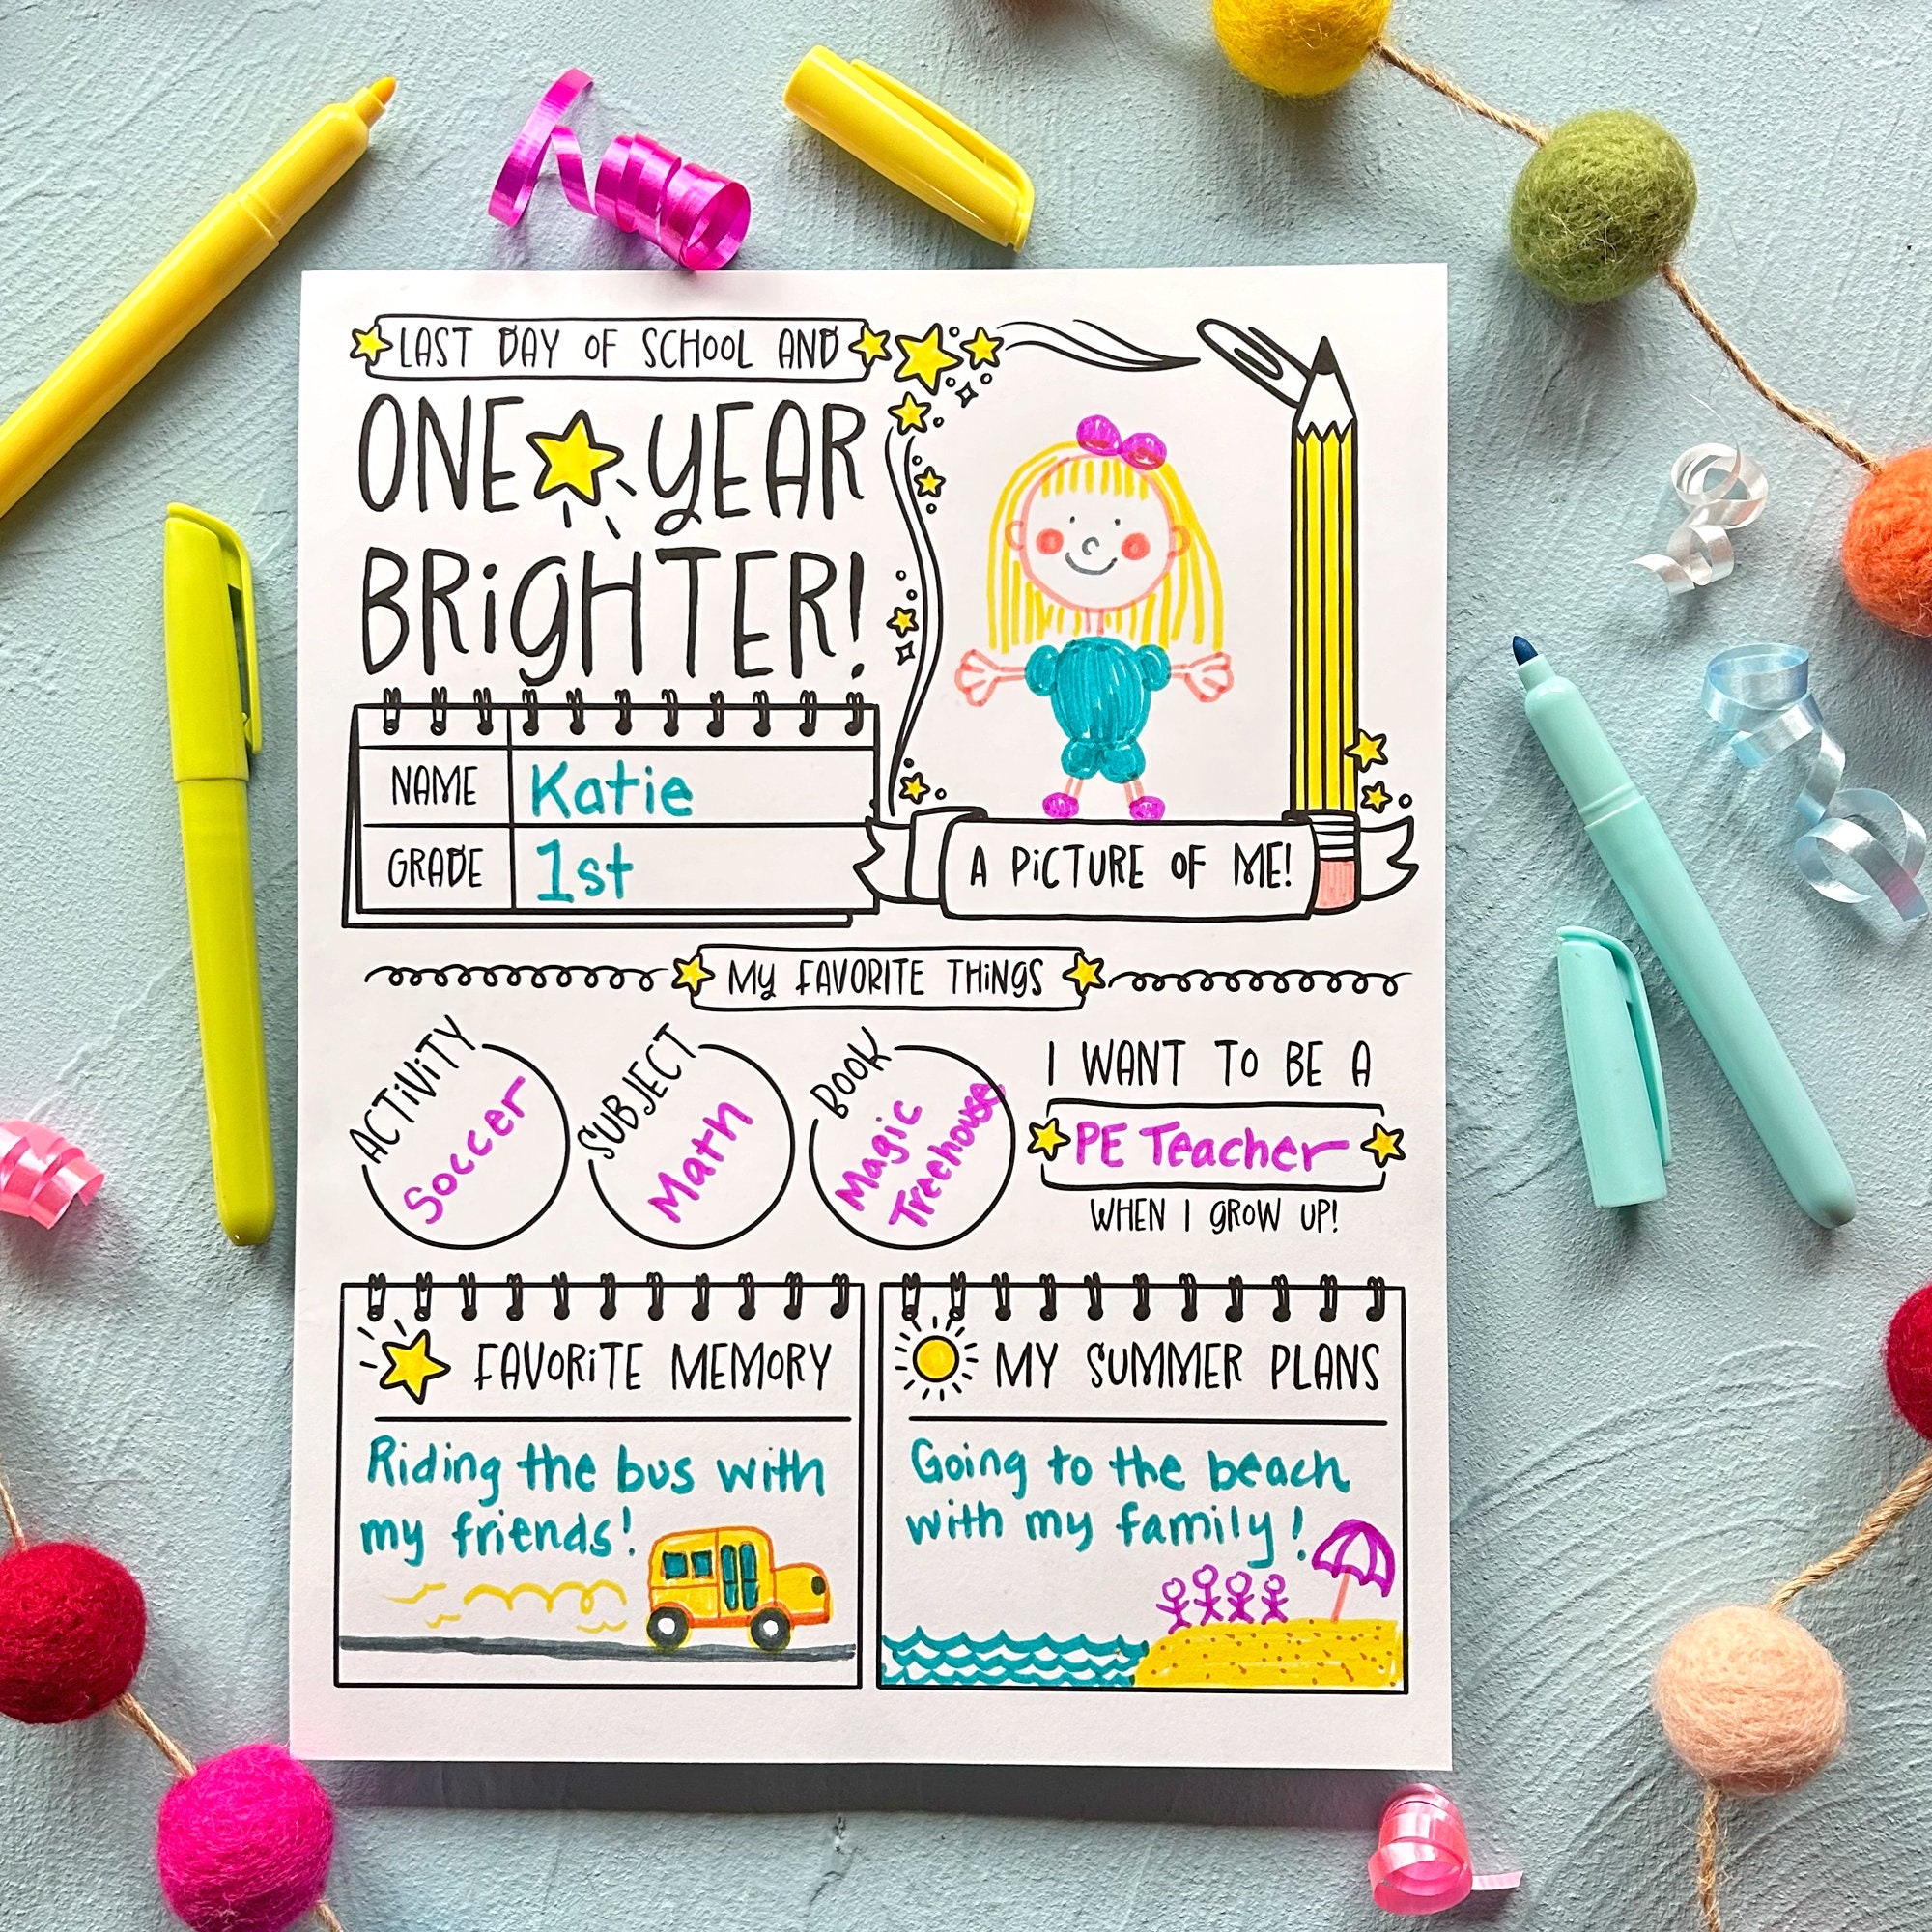 LAST DAY OF SCHOOL AND
ONE YEAR
BRiGHTER!
NAME Katie
GRADE 1st
A PiCTURE OF ME!
My FAVORITE THiNGS
ACTiViTY
Soccer
SUBJECT
Math
BOOK
Magic
Treehouse
I WANT TO BE A
PE Teacher
WHEN I GROW UP!
FAVORiTE MEMORY
Riding the bus with
my friends!
MY SUMMER PLANS
Going to the beach
with my family!